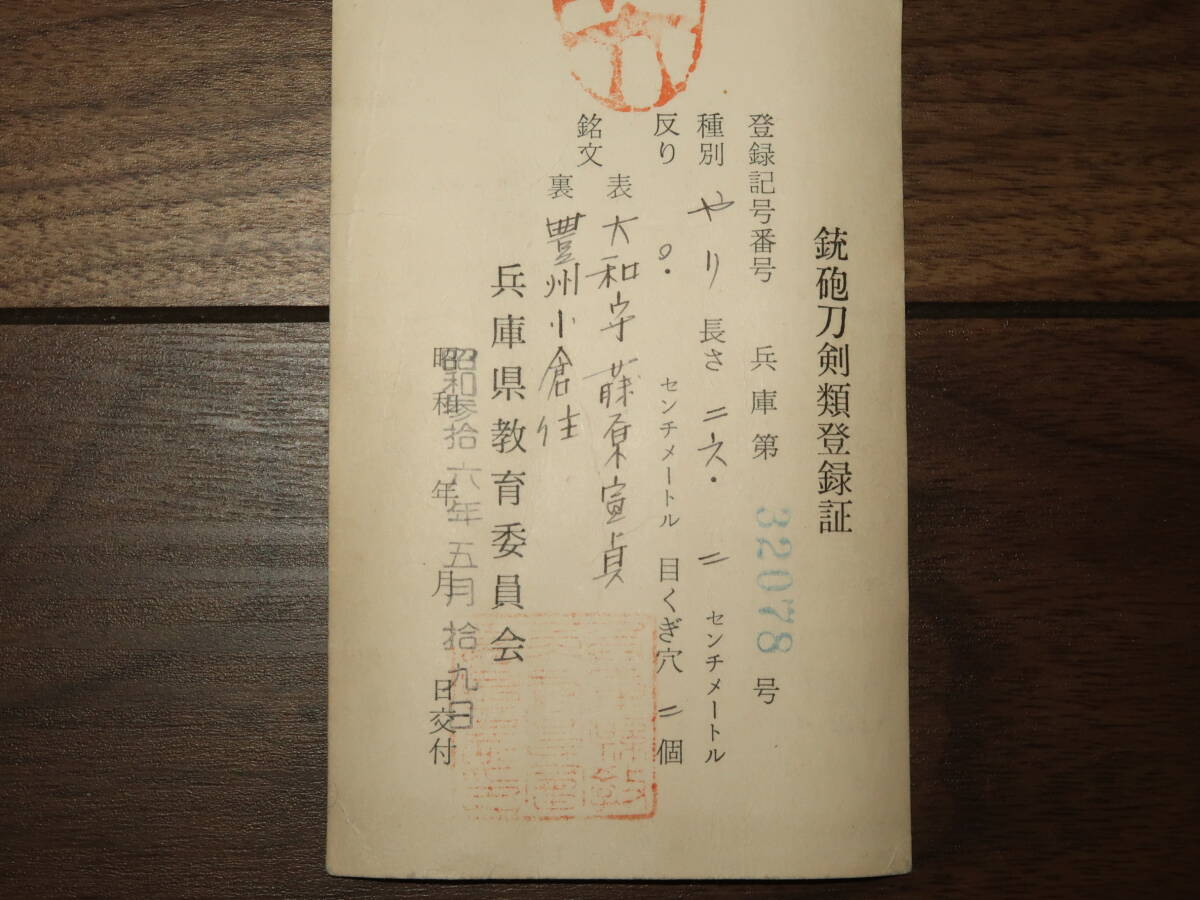 銃砲刀剣類登録証
登録記号番号 兵庫第 32078 号
種別 やり 長さ 二六・二 センチメートル
反り 0・ センチメートル 目くぎ穴 二 個
銘文
表 大和守藤原宣貞
裏 豊州小倉住
兵庫県教育委員会
昭和参拾六年五月拾九日
昭和 年 月 日交付